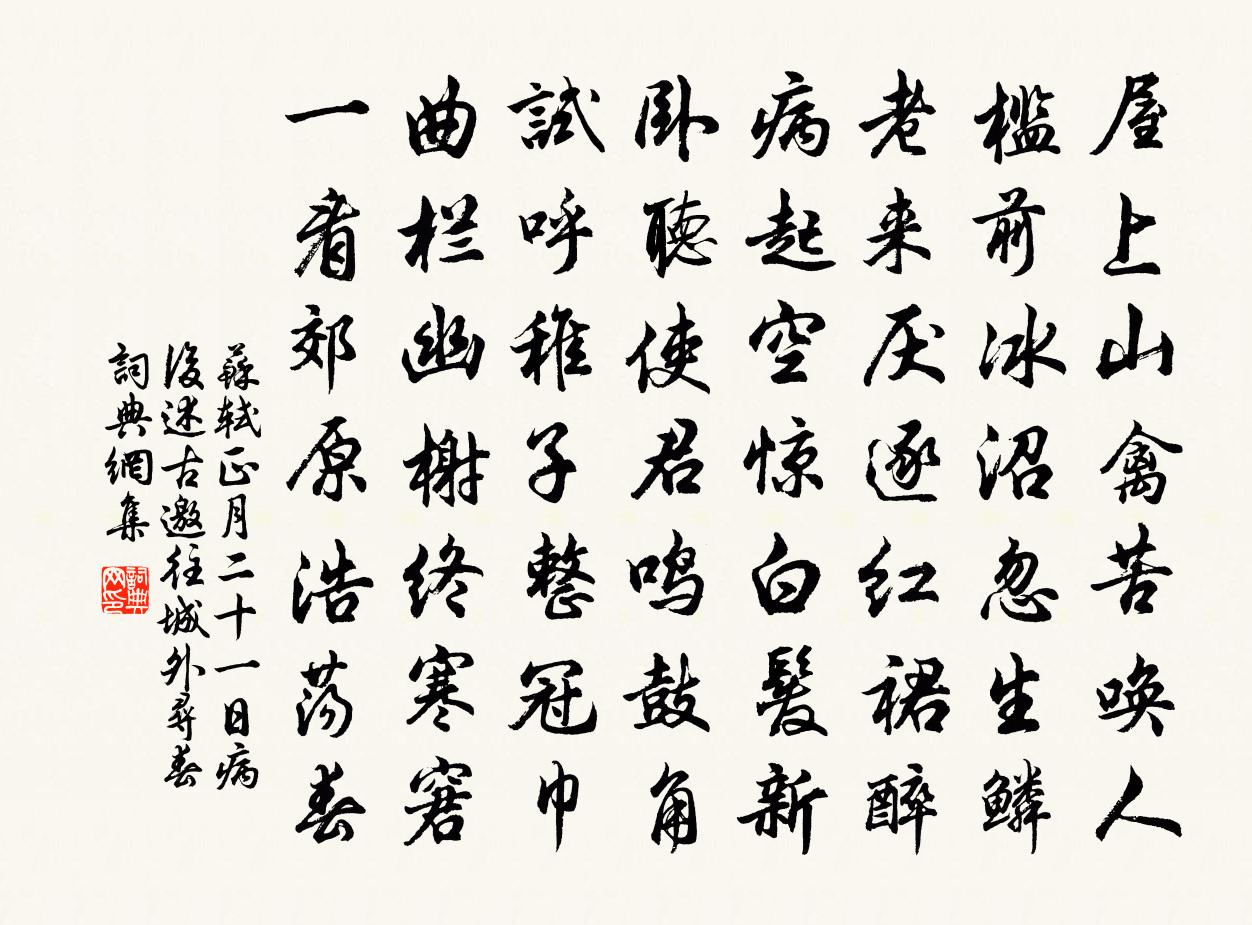 屋上山禽苦唤人
槛前冰沼忽生鳞
老来厌逐红裙醉
病起空惊白髮新
卧聽使君鸣鼓角
試呼稚子整冠巾
曲栏幽榭终寒窘
一看郊原浩荡春
蘇轼正月二十一日病
後述古邀往城外尋春
詞典網集
詞典网印